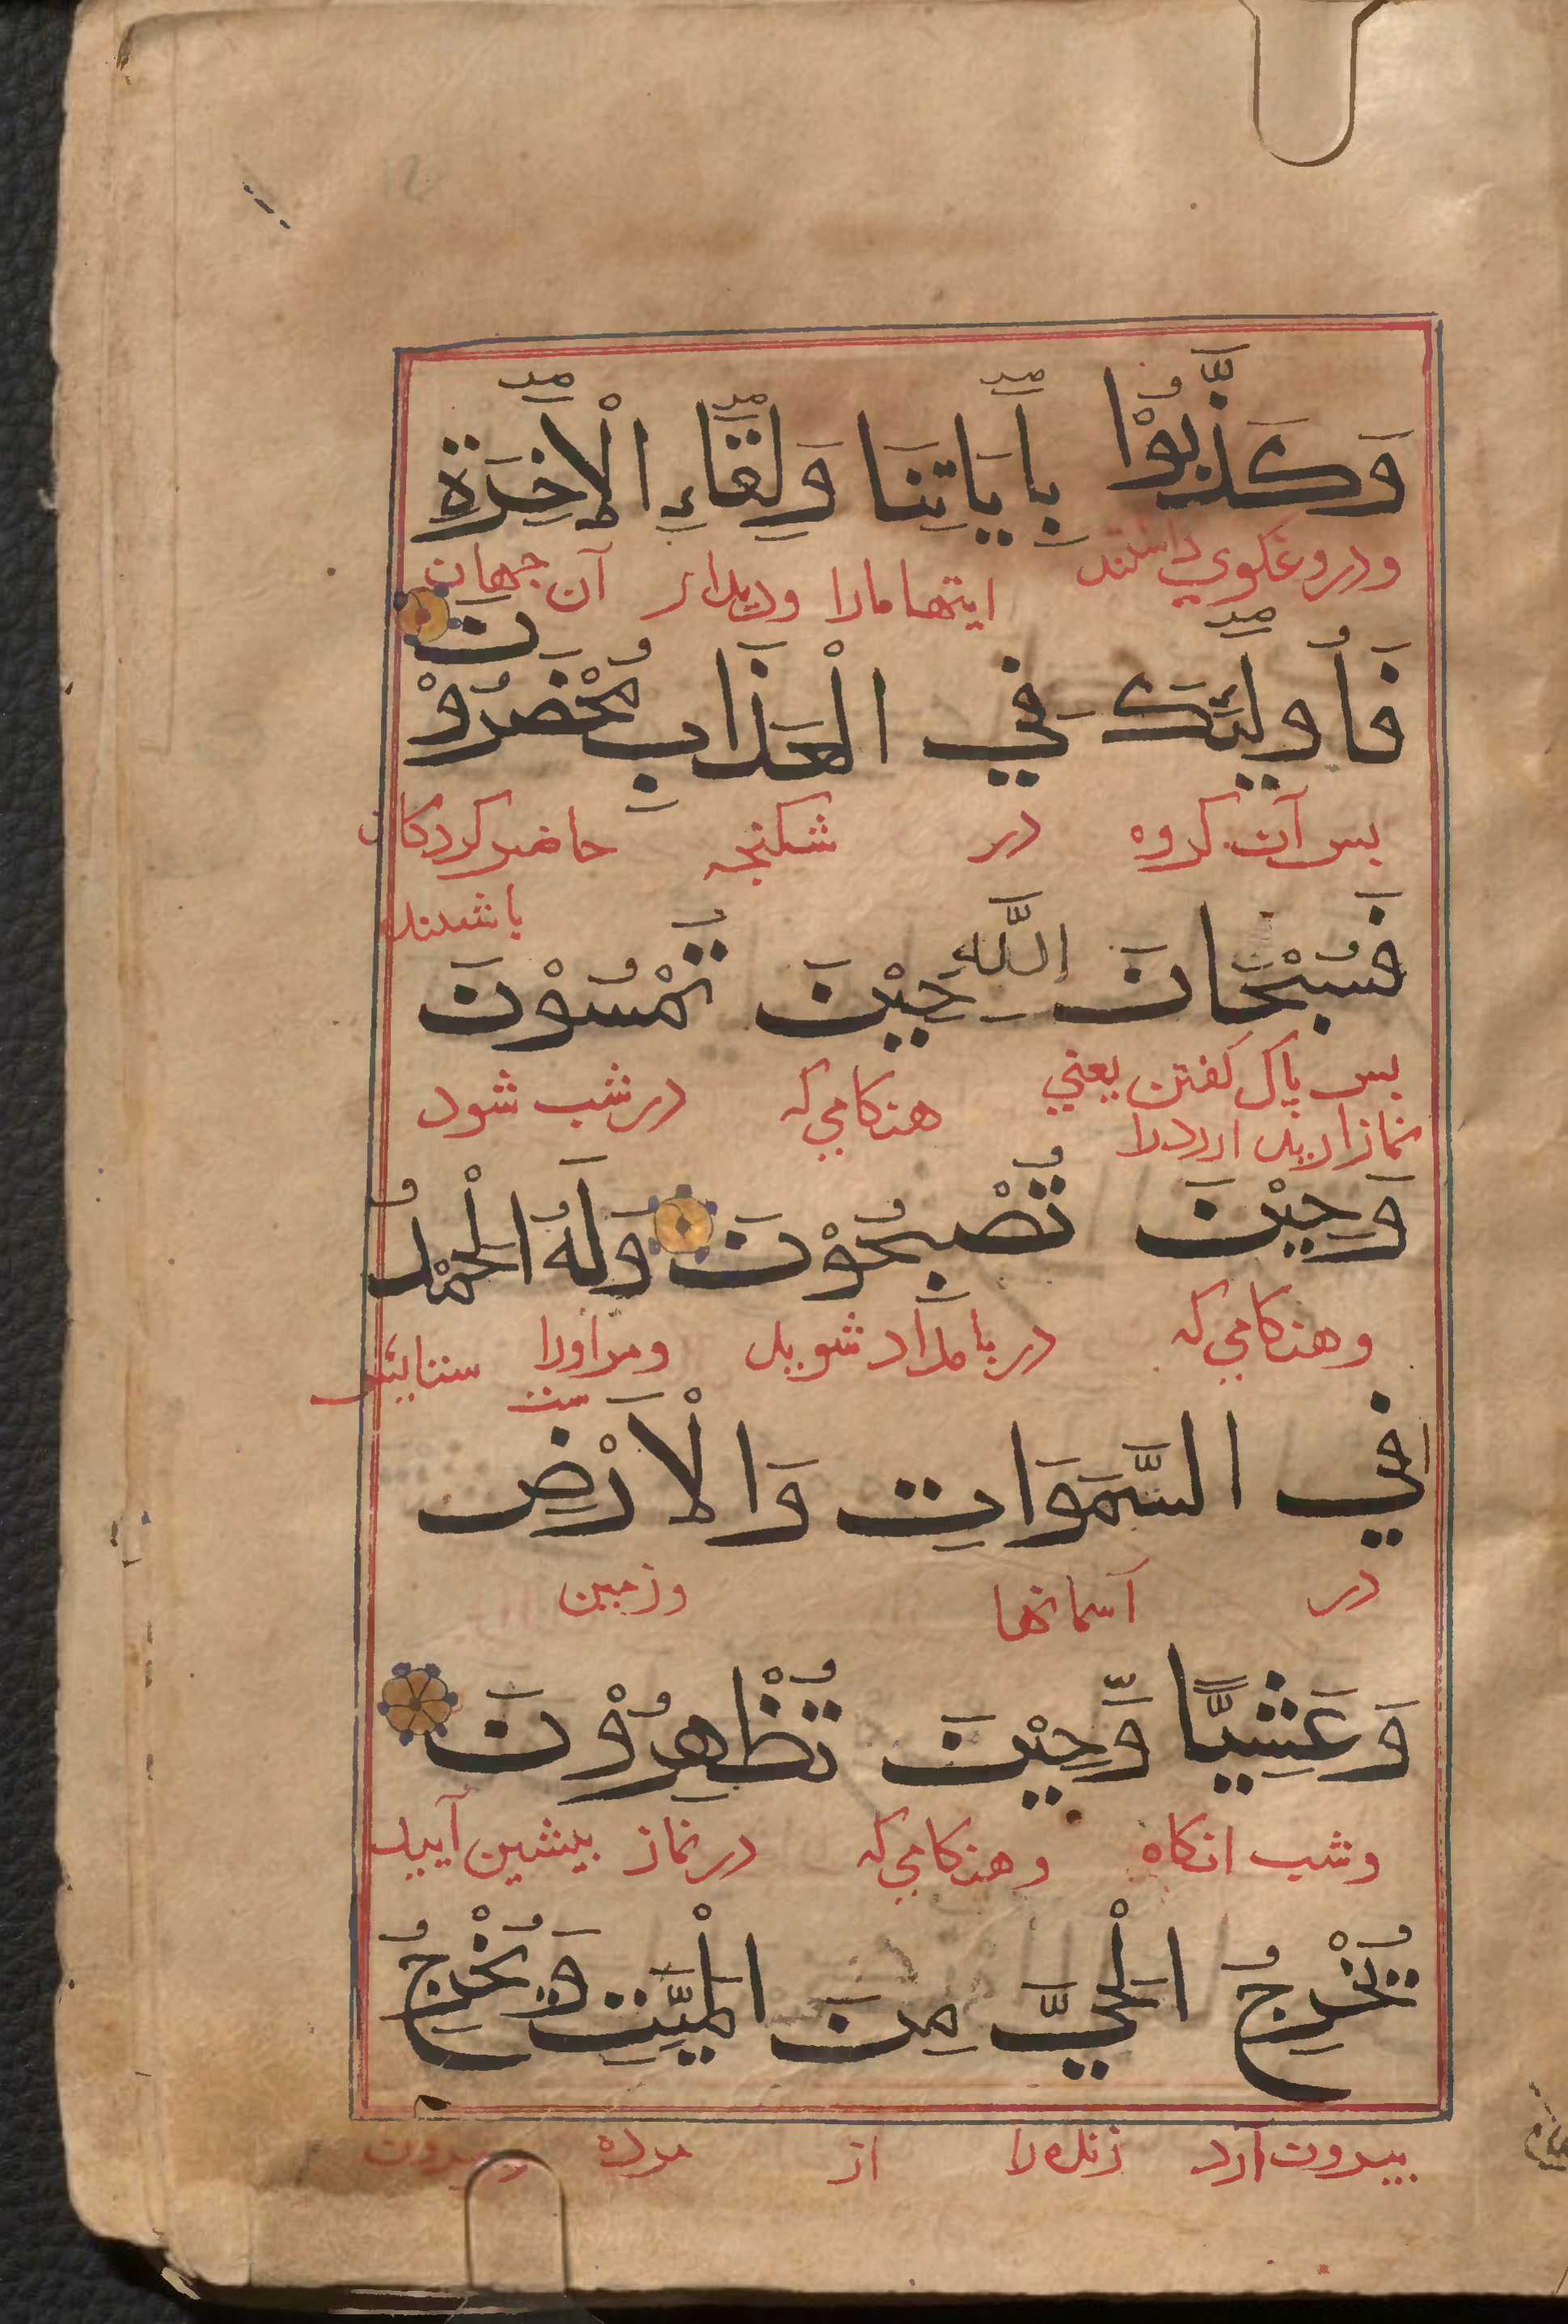 وَكَذَّبُوْا بِأَيَاتِنَا وَلِقَاءِ الْاٰخِرَةِ
ودروغكوي داشتند ايتها مارا وديدار آن جهان
فَأُولَئِكَ فِي الْعَذَابِ مُحْضَرُوْنَ
بس آن كروه در شكنجه حاضر كردكان
باشند
فَسُبْحَانَ اللَّهِ حِيْنَ تُمْسُوْنَ
بس پاك كفتن يعني هنكامي كه در شب شود
نماز اريد ارد را
وَحِيْنَ تُصْبِحُوْنَ وَلَهُ الْحَمْدُ
وهنكامي كه در بامداد شويد ومر اورا ستايش
ست
فِي السَّمَوَاتِ وَالْاَرْضِ
در آسمانها وزمين
وَعَشِيًّا وَّحِيْنَ تُظْهِرُوْنَ
وشب انكاه وهنكامي كه در نماز بيشين آييد
تُخْرِجُ الْحَيَّ مِنَ الْمَيِّتِ وَيُخْرِجُ
بيرون آرد زنده را از مرده وبيرون